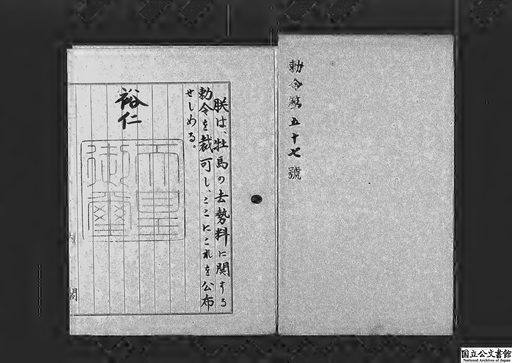 勅令第五十七號
朕は、牡馬の去勢料に関する
勅令を裁可し、ここにこれを公布
せしめる。
裕仁
天皇
御璽
国立公文書館
National Archives of Japan